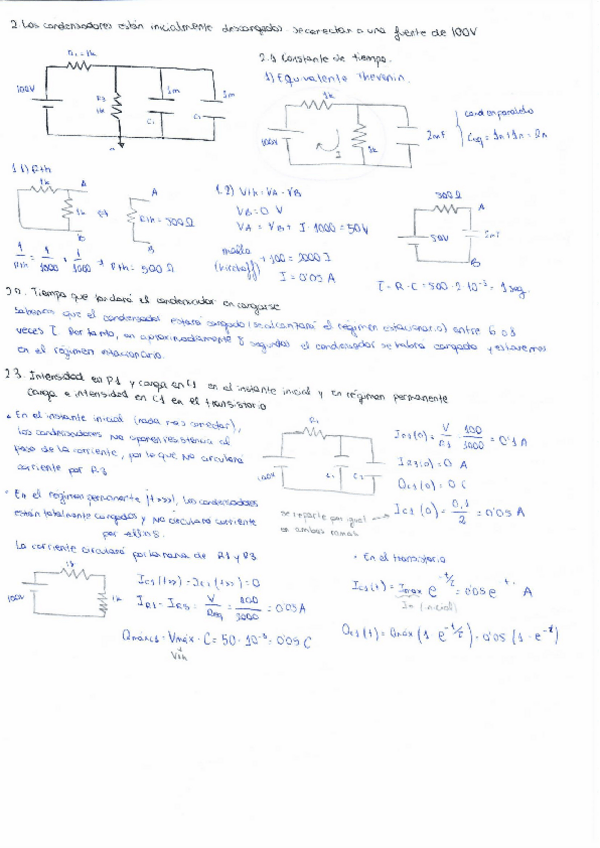 2. Los condensadores están inicialmente descargados. se conectan a una fuente de 100V
R1=1k
100V
R3
1k
1m
C1
1m
C2
2.1 Constante de tiempo.
1) Equivalente Thevenin.
1k
100V
1k
I
2mF
cond en paralelo
Ceq = 1m + 1m = 2m
1.1) Rth
1k
1k
A
B
⇔
A
Rth = 500Ω
B
1/Rth = 1/1000 + 1/1000 → Rth = 500 Ω
1.2) Vth = VA - VB
VB = 0 V
VA = VB + I · 1000 = 50V
malla
(kirchoff)
+100 = 2000 I
I = 0'05 A
500 Ω
A
50V
2mF
B
τ = R · C = 500 · 2 · 10⁻³ = 1 seg.
2.2. Tiempo que tardará el condensador en cargarse
Sabemos que el condensador estará cargado (se alcanzará el régimen estacionario) entre 5 o 8
veces τ. Por tanto, en aproximadamente 8 segundos el condensador se habrá cargado y estaremos
en el régimen estacionario.
2.3. Intensidad en R1 y carga en C1 en el instante inicial y en régimen permanente
carga e intensidad en C1 en el transistorio
• En el instante inicial (nada más conectar),
los condensadores no oponen resistencia al
paso de la corriente, por lo que no circulará
corriente por R3
R1
100V
C1
C2
IR1(0) = V/R1 = 100/1000 = 0'1 A
IR3(0) = 0 A
QC1(0) = 0 C
se reparte por igual
en ambas ramas
IC1(0) = 0,1/2 = 0'05 A
• En el régimen permanente (t→∞), los condensadores
están totalmente cargados y no circulará corriente
por ellos.
La corriente circulará por la rama de R1 y R3
1k
100V
1k
IC1(t→∞) = IC2(t→∞) = 0
IR1 = IR3 = V/Req = 100/2000 = 0'05 A
Qmáx C1 = Vmáx · C = 50 · 10⁻³ = 0'05 C
Vth
• En el transistorio
IC1(t) = Imax e^(-t/τ) = 0'05 e^(-t) A
Io (inicial)
QC1(t) = Qmáx (1 - e^(-t/τ)) = 0'05 (1 - e^(-t))